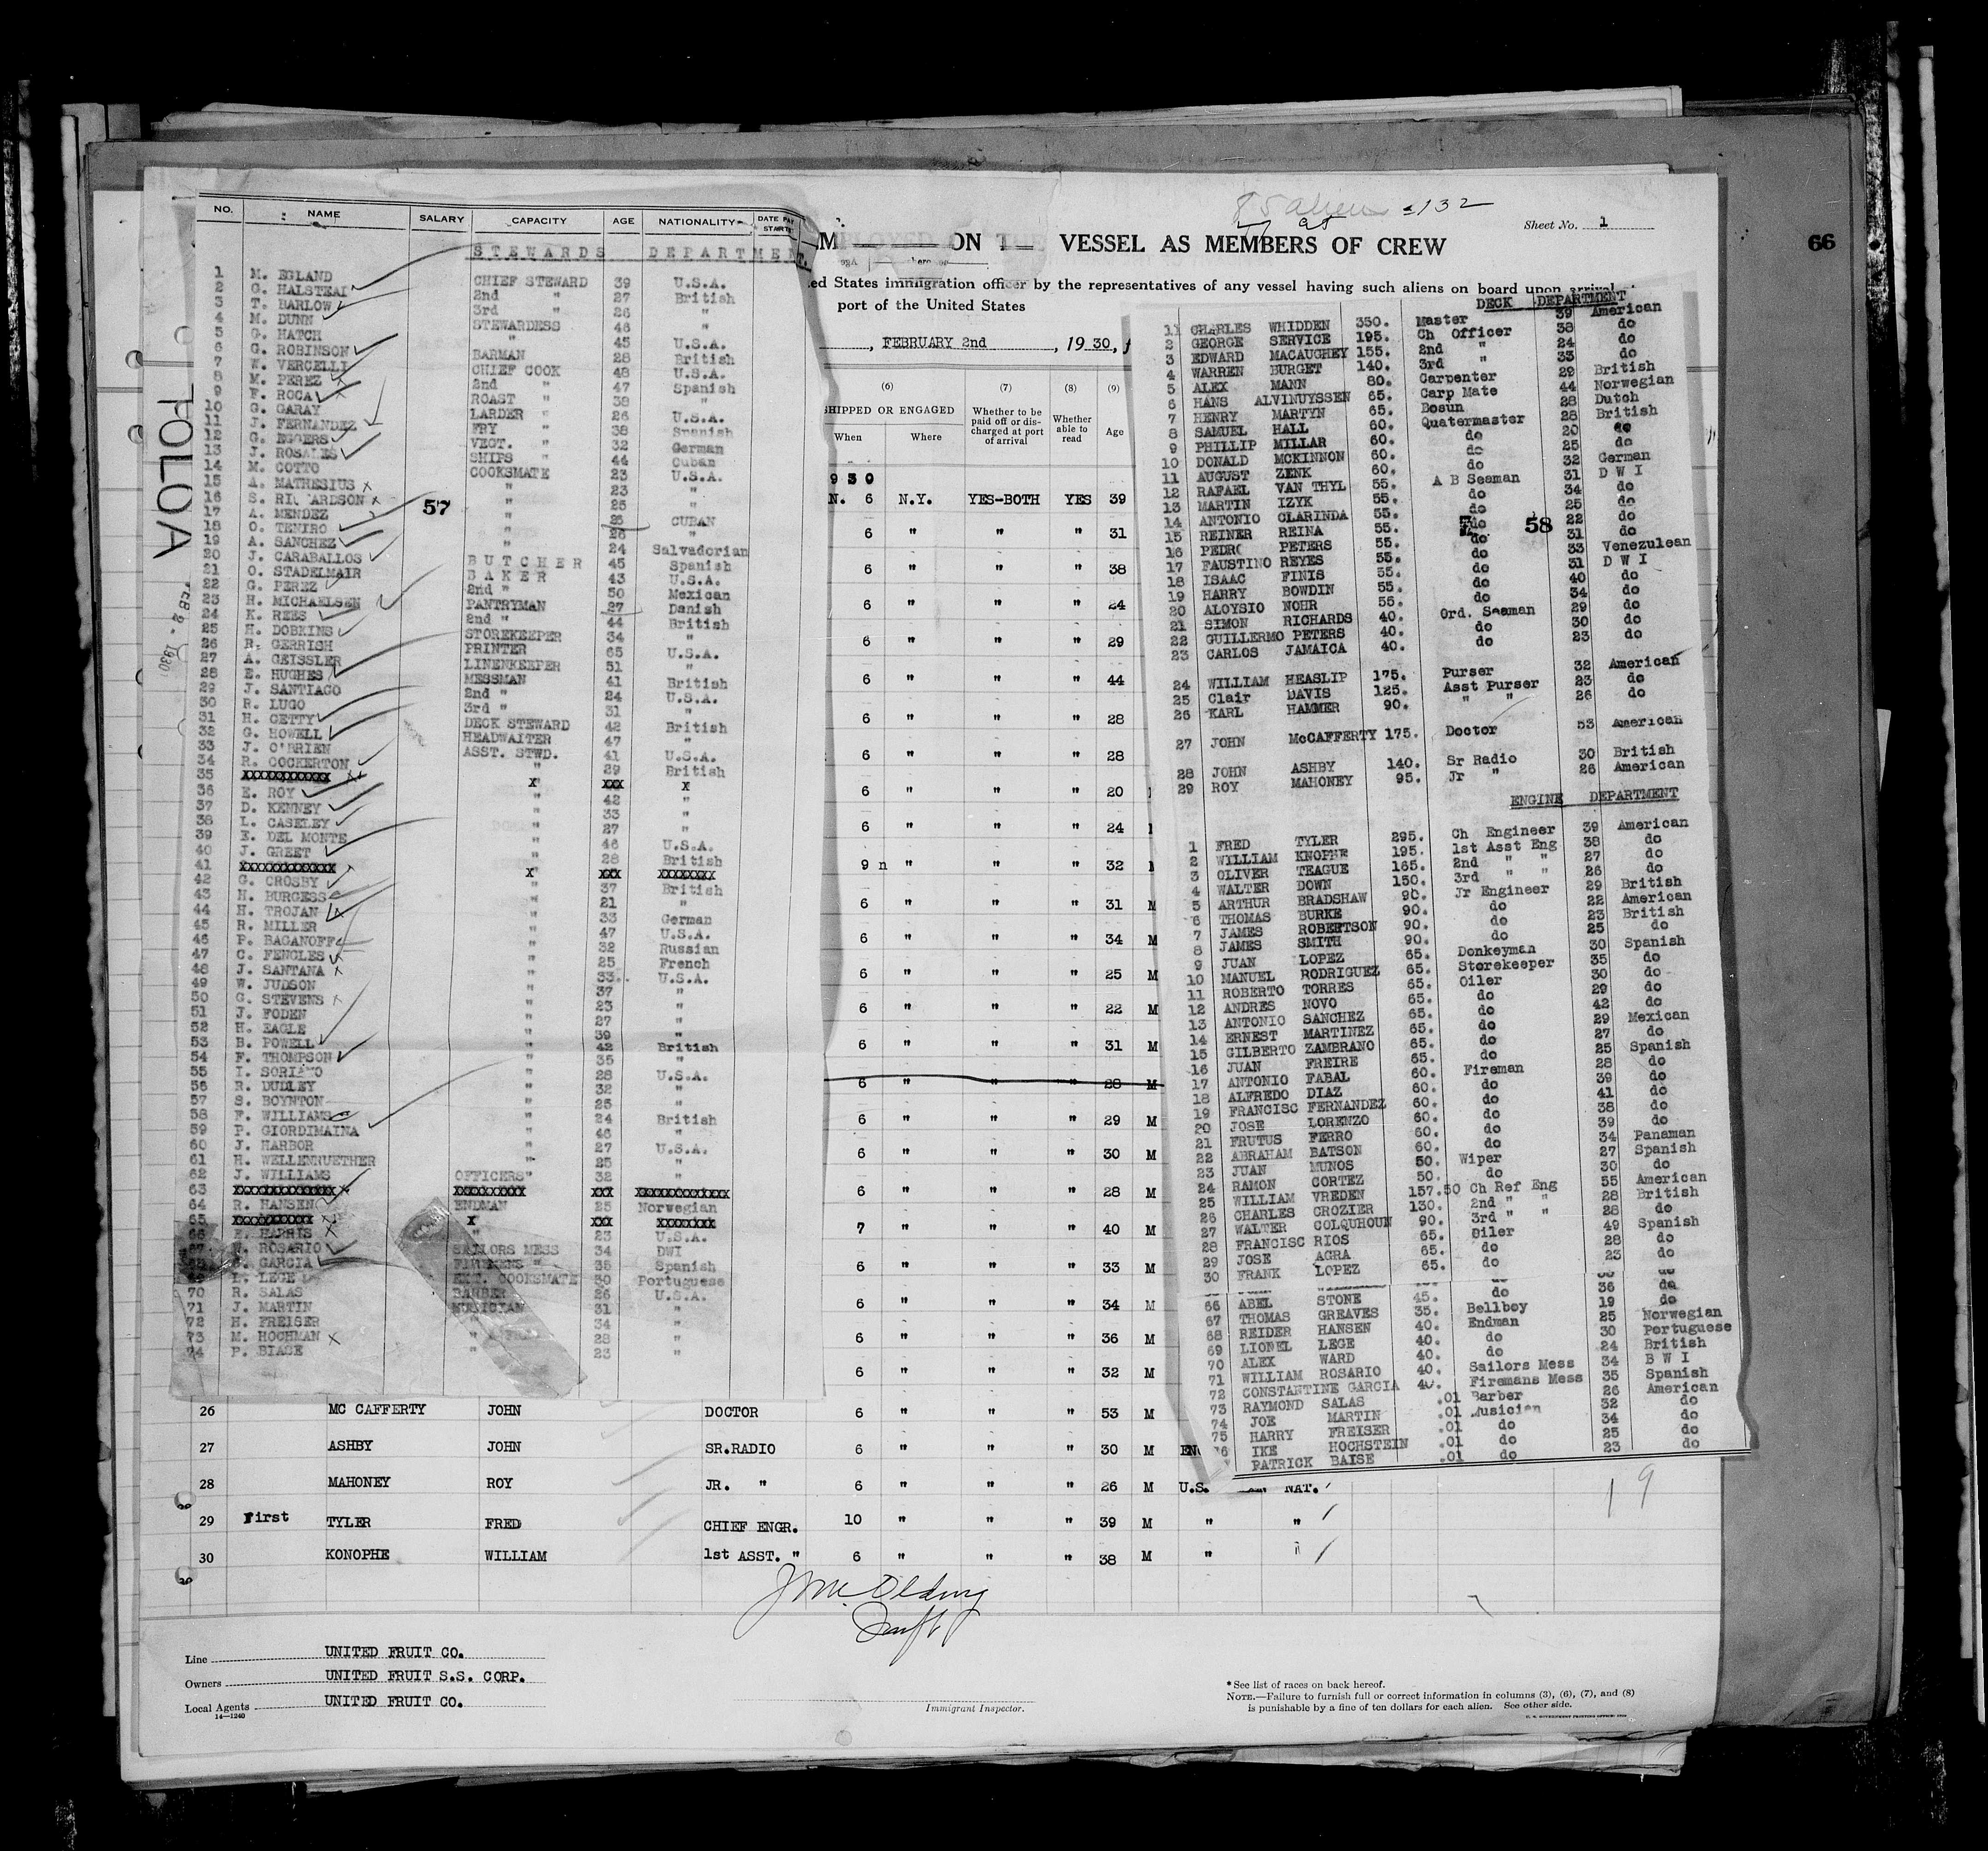 NO. NAME SALARY CAPACITY AGE NATIONALITY DATE PAY STARTS
STEWARDS DEPARTMENT.
1 M. EGLAND CHIEF STEWARD 39 U.S.A.
2 G. HALSTEAD 2nd " 27 British
3 T. BARLOW 3rd " 26 "
4 M. DUNN STEWARDESS 46 "
5 G. HATCH " 45 U.S.A.
6 G. ROBINSON BARMAN 28 British
7 W. VERCELLI CHIEF COOK 48 U.S.A.
8 M. PEREZ 2nd " 47 Spanish
9 F. ROCA ROAST " 38 "
10 G. GARAY LARDER " 26 U.S.A.
11 J. FERNANDEZ FRY " 38 Spanish
12 G. EGGERS VEGT. " 32 German
13 J. ROSALES SHIPS " 44 Cuban
14 M. COTTO COOKSMATE 23 U.S.A.
15 A. MATHESIUS " 23 "
16 S. RICHARDSON " 25 "
17 A. MENDEZ " 25 CUBAN
18 O. TENIRO " 26 "
19 A. SANCHEZ " 24 Salvadorian
20 J. CARABALLOS BUTCHER 45 Spanish
21 O. STADELMAIR BAKER 43 U.S.A.
22 G. PEREZ 2nd " 50 Mexican
23 H. MICHAELSEN PANTRYMAN 27 Danish
24 K. REES 2nd " 44 British
25 H. DOBKINS STOREKEEPER 34 "
26 R. GERRISH PRINTER 65 U.S.A.
27 A. GEISSLER LINENKEEPER 51 "
28 E. HUGHES MESSMAN 41 British
29 J. SANTIAGO 2nd " 24 U.S.A.
30 R. LUGO 3rd " 31 "
31 H. GETTY DECK STEWARD 42 British
32 G. HOWELL HEADWAITER 47 "
33 J. O'BRIEN ASST. STWD. 41 U.S.A.
34 R. COCKERTON " 29 British
35 XXXXXXXXXXXX X XXX X
36 E. ROY " 42 "
37 D. KENNEY " 33 "
38 L. CASELEY " 27 "
39 E. DEL MONTE " 46 U.S.A.
40 J. GREET " 28 British
41 XXXXXXXXXXXXX X XXX XXXXXXXX
42 G. CROSBY " 37 British
43 H. BURGESS " 21 "
44 H. TROJAN " 33 German
45 R. MILLER " 47 U.S.A.
46 P. BAGANOFF " 32 Russian
47 C. FENGLES " 25 French
48 J. SANTANA " 33 U.S.A.
49 W. JUDSON " 37 "
50 G. STEVENS " 23 "
51 J. FODEN " 27 "
52 H. EAGLE " 39 "
53 B. POWELL " 42 British
54 F. THOMPSON " 35 "
55 I. SORIANO " 28 U.S.A.
56 R. DUDLEY " 32 "
57 S. BOYNTON " 25 "
58 F. WILLIAMS " 24 British
59 P. GIORDIMAINA " 46 "
60 J. HARBOR " 27 U.S.A.
61 H. WELLENRUETHER " 25 "
62 J. WILLIAMS OFFICERS" 32 "
63 XXXXXXXXXXXXX XXXXXXXXX XXX XXXXXXXXXXXX
64 R. HANSEN ENDMAN 25 Norwegian
65 XXXXXXXXXX X XXX XXXXXXXX
66 HARRIS " 23 U.S.A.
67 W. ROSARIO SAILORS MESS 34 DWI
68 GARCIA FIREMENS " 35 Spanish
69 L. LEGE EXT. COOKSMATE 30 Portuguese
70 R. SALAS BARBER 26 U.S.A.
71 J. MARTIN MUSICIAN 31 "
72 H. FREISER " 34 "
73 M. HOCHMAN " 28 "
74 P. BIASE " 23 "
57
TOLOA
FEB 2 - 1930
ON VESSEL AS MEMBERS OF CREW
Sheet No. 1
66
aliens 132
ed States immigration officer by the representatives of any vessel having such aliens on board upon arrival
port of the United States
, FEBRUARY 2nd , 1930,
(6) (7) (8) (9)
SHIPPED OR ENGAGED
When Where
Whether to be paid off or discharged at port of arrival
Whether able to read
Age
930
N. 6 N.Y. YES-BOTH YES 39
6 " " " 31
6 " " " 38
6 " " " 24
6 " " " 29
6 " " " 44
6 " " " 28
6 " " " 28
6 " " " 20
6 " " " 24
9 n " " " 32
6 " " " 31 M
6 " " " 34 M
6 " " " 25 M
6 " " " 22 M
6 " " " 31 M
6 " " " 28 M
6 " " " 29 M
6 " " " 30 M
6 " " " 28 M
7 " " " 40 M
6 " " " 33 M
6 " " " 34 M
6 " " " 36 M
6 " " " 32 M
26 MC CAFFERTY JOHN DOCTOR 6 " " " 53 M
27 ASHBY JOHN SR.RADIO 6 " " " 30 M EN
28 MAHONEY ROY JR. " 6 " " " 26 M U.S. NAT.
29 First TYLER FRED CHIEF ENGR. 10 " " " 39 M " "
30 KONOPHE WILLIAM 1st ASST. " 6 " " " 38 M " "
19
DECK DEPARTMENT
1 CHARLES WHIDDEN 350. Master 39 American
2 GEORGE SERVICE 195. Ch Officer 38 do
3 EDWARD MACAUGHEY 155. 2nd " 24 do
4 WARREN BURGET 140. 3rd " 33 do
5 ALEX MANN 80. Carpenter 29 British
6 HANS ALVINUYSSEN 65. Carp Mate 44 Norwegian
7 HENRY MARTYN 65. Bosun 28 Dutch
8 SAMUEL HALL 60. Quatermaster 28 British
9 PHILLIP MILLAR 60. do 20 do
10 DONALD MCKINNON 60. do 25 do
11 AUGUST ZENK 60. do 32 German
12 RAFAEL VAN THYL 55. A B Seaman 31 D W I
13 MARTIN IZYK 55. do 34 do
14 ANTONIO CLARINDA 55. do 25 do
15 REINER REINA 55. do 22 do
16 PEDRO PETERS 55. do 31 do
17 FAUSTINO REYES 55. do 33 Venezulean
18 ISAAC FINIS 55. do 31 D W I
19 HARRY BOWDIN 55. do 40 do
20 ALOYSIO NOHR 55. do 34 do
21 SIMON RICHARDS 40. Ord. Seaman 29 do
22 GUILLERMO PETERS 40. do 30 do
23 CARLOS JAMAICA 40. do 23 do
58
24 WILLIAM HEASLIP 175. Purser 32 American
25 Clair DAVIS 125. Asst Purser 23 do
26 KARL HAMMER 90. " " 26 do
27 JOHN McCAFFERTY 175. Doctor 53 American
28 JOHN ASHBY 140. Sr Radio 30 British
29 ROY MAHONEY 95. Jr " 26 American
ENGINE DEPARTMENT
1 FRED TYLER 295. Ch Engineer 39 American
2 WILLIAM KNOPHE 195. 1st Asst Eng 38 do
3 OLIVER TEAGUE 165. 2nd " " 27 do
4 WALTER DOWN 150. 3rd " " 26 do
5 ARTHUR BRADSHAW 90. Jr Engineer 29 British
6 THOMAS BURKE 90. do 22 American
7 JAMES ROBERTSON 90. do 23 British
8 JAMES SMITH 90. do 25 do
9 JUAN LOPEZ 65. Donkeyman 30 Spanish
10 MANUEL RODRIGUEZ 65. Storekeeper 35 do
11 ROBERTO TORRES 65. Oiler 30 do
12 ANDRES NOVO 65. do 29 do
13 ANTONIO SANCHEZ 65. do 42 do
14 ERNEST MARTINEZ 65. do 29 Mexican
15 GILBERTO ZAMBRANO 65. do 27 do
16 JUAN FREIRE 65. do 25 Spanish
17 ANTONIO FABAL 60. Fireman 28 do
18 ALFREDO DIAZ 60. do 39 do
19 FRANCISC FERNANDEZ 60. do 41 do
20 JOSE LORENZO 60. do 38 do
21 FRUTUS FERRO 60. do 39 do
22 ABRAHAM BATSON 60. do 34 Panaman
23 JUAN MUNOS 50. Wiper 27 Spanish
24 RAMON CORTEZ 50. do 30 do
25 WILLIAM VREDEN 157.50 Ch Ref Eng 55 American
26 CHARLES CROZIER 130. 2nd " " 28 British
27 WALTER COLQUHOUN 90. 3rd " " 28 do
28 FRANCISC RIOS 65. Oiler 49 Spanish
29 JOSE AGRA 65. do 28 do
30 FRANK LOPEZ 65. do 23 do
66 ABEL STONE 45. do 36 do
67 THOMAS GREAVES 35. Bellboy 19 do
68 REIDER HANSEN 40. Endman 25 Norwegian
69 LIONEL LEGE 40. do 30 Portuguese
70 ALEX WARD 40. do 24 British
71 WILLIAM ROSARIO 40. Sailors Mess 34 B W I
72 CONSTANTINE GARCIA 40. Firemans Mess 35 Spanish
73 RAYMOND SALAS .01 Barber 26 American
74 JOE MARTIN .01 Musician 32 do
75 HARRY FREISER .01 do 34 do
76 IKE HOCHSTEIN .01 do 25 do
PATRICK BAISE .01 do 23 do
Line UNITED FRUIT CO.
Owners UNITED FRUIT S.S. CORP.
Local Agents UNITED FRUIT CO.
14—1240
Immigrant Inspector.
*See list of races on back hereof.
NOTE.—Failure to furnish full or correct information in columns (3), (6), (7), and (8)
is punishable by a fine of ten dollars for each alien. See other side.
U. S. GOVERNMENT PRINTING OFFICE